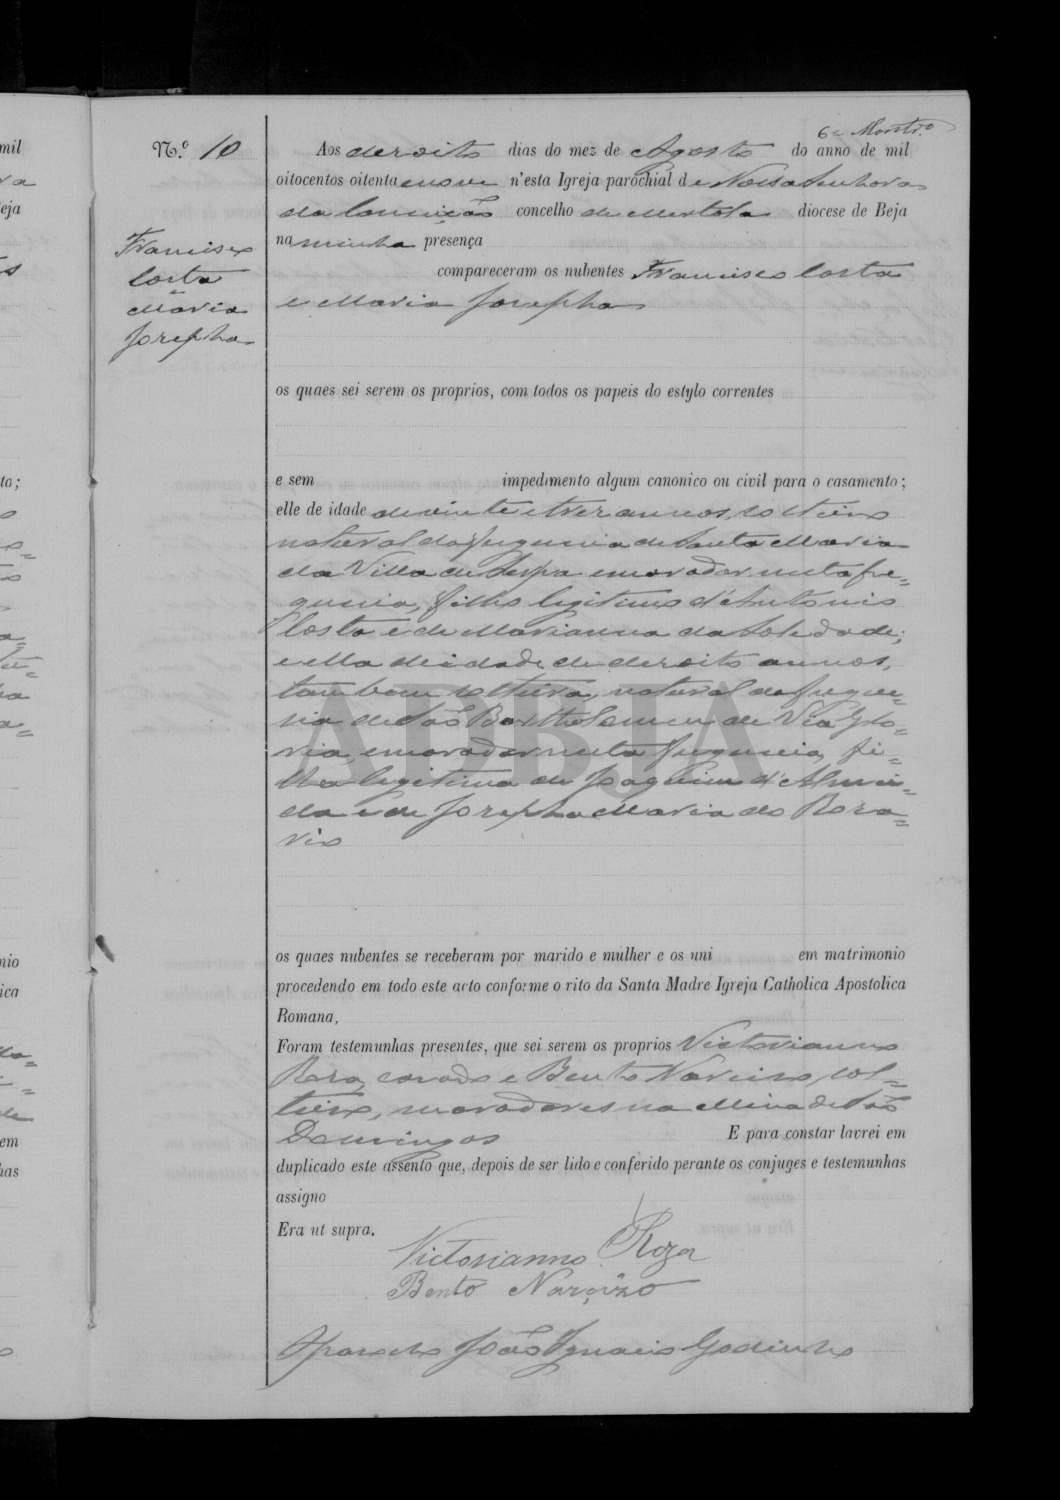 6 Montr.º
N.º 10
Aos dezoito dias do mez de Agosto do anno de mil
oitocentos oitenta e nove n'esta Igreja parochial de Nossa Senhora
da Conceição concelho de Mertola diocese de Beja
na minha presença
Francisco
Costa
e
Maria
Josepha
compareceram os nubentes Francisco Costa
e Maria Josepha
os quaes sei serem os proprios, com todos os papeis do estylo correntes
e sem impedimento algum canonico ou civil para o casamento;
elle de idade de vinte e trez annos, solteiro
natural da freguezia de Santa Maria
da Villa de Serpa e morador nesta fre=
guezia, filho legitimo d'Antonio
Costa e de Marianna da Soledade;
e ella de idade de dezoito annos,
tambem solteira, natural da fregue=
zia de São Bartholomeu de Via Glo=
ria, e moradora nesta freguezia, fi=
lha legitima de Joaquim d'Almei=
da e de Josepha Maria do Roza=
rio
os quaes nubentes se receberam por marido e mulher e os uni em matrimonio
procedendo em todo este acto conforme o rito da Santa Madre Igreja Catholica Apostolica
Romana,
Foram testemunhas presentes, que sei serem os proprios Victorianno
Roza, casado e Bento Narcizo, sol=
teiro, moradores na Mina de São
Domingos E para constar lavrei em
duplicado este assento que, depois de ser lido e conferido perante os conjuges e testemunhas
assigno
Era ut supra.
Victorianno Roza
Bento Narcizo
O parocho João Ignacio Godinho
ADBJA